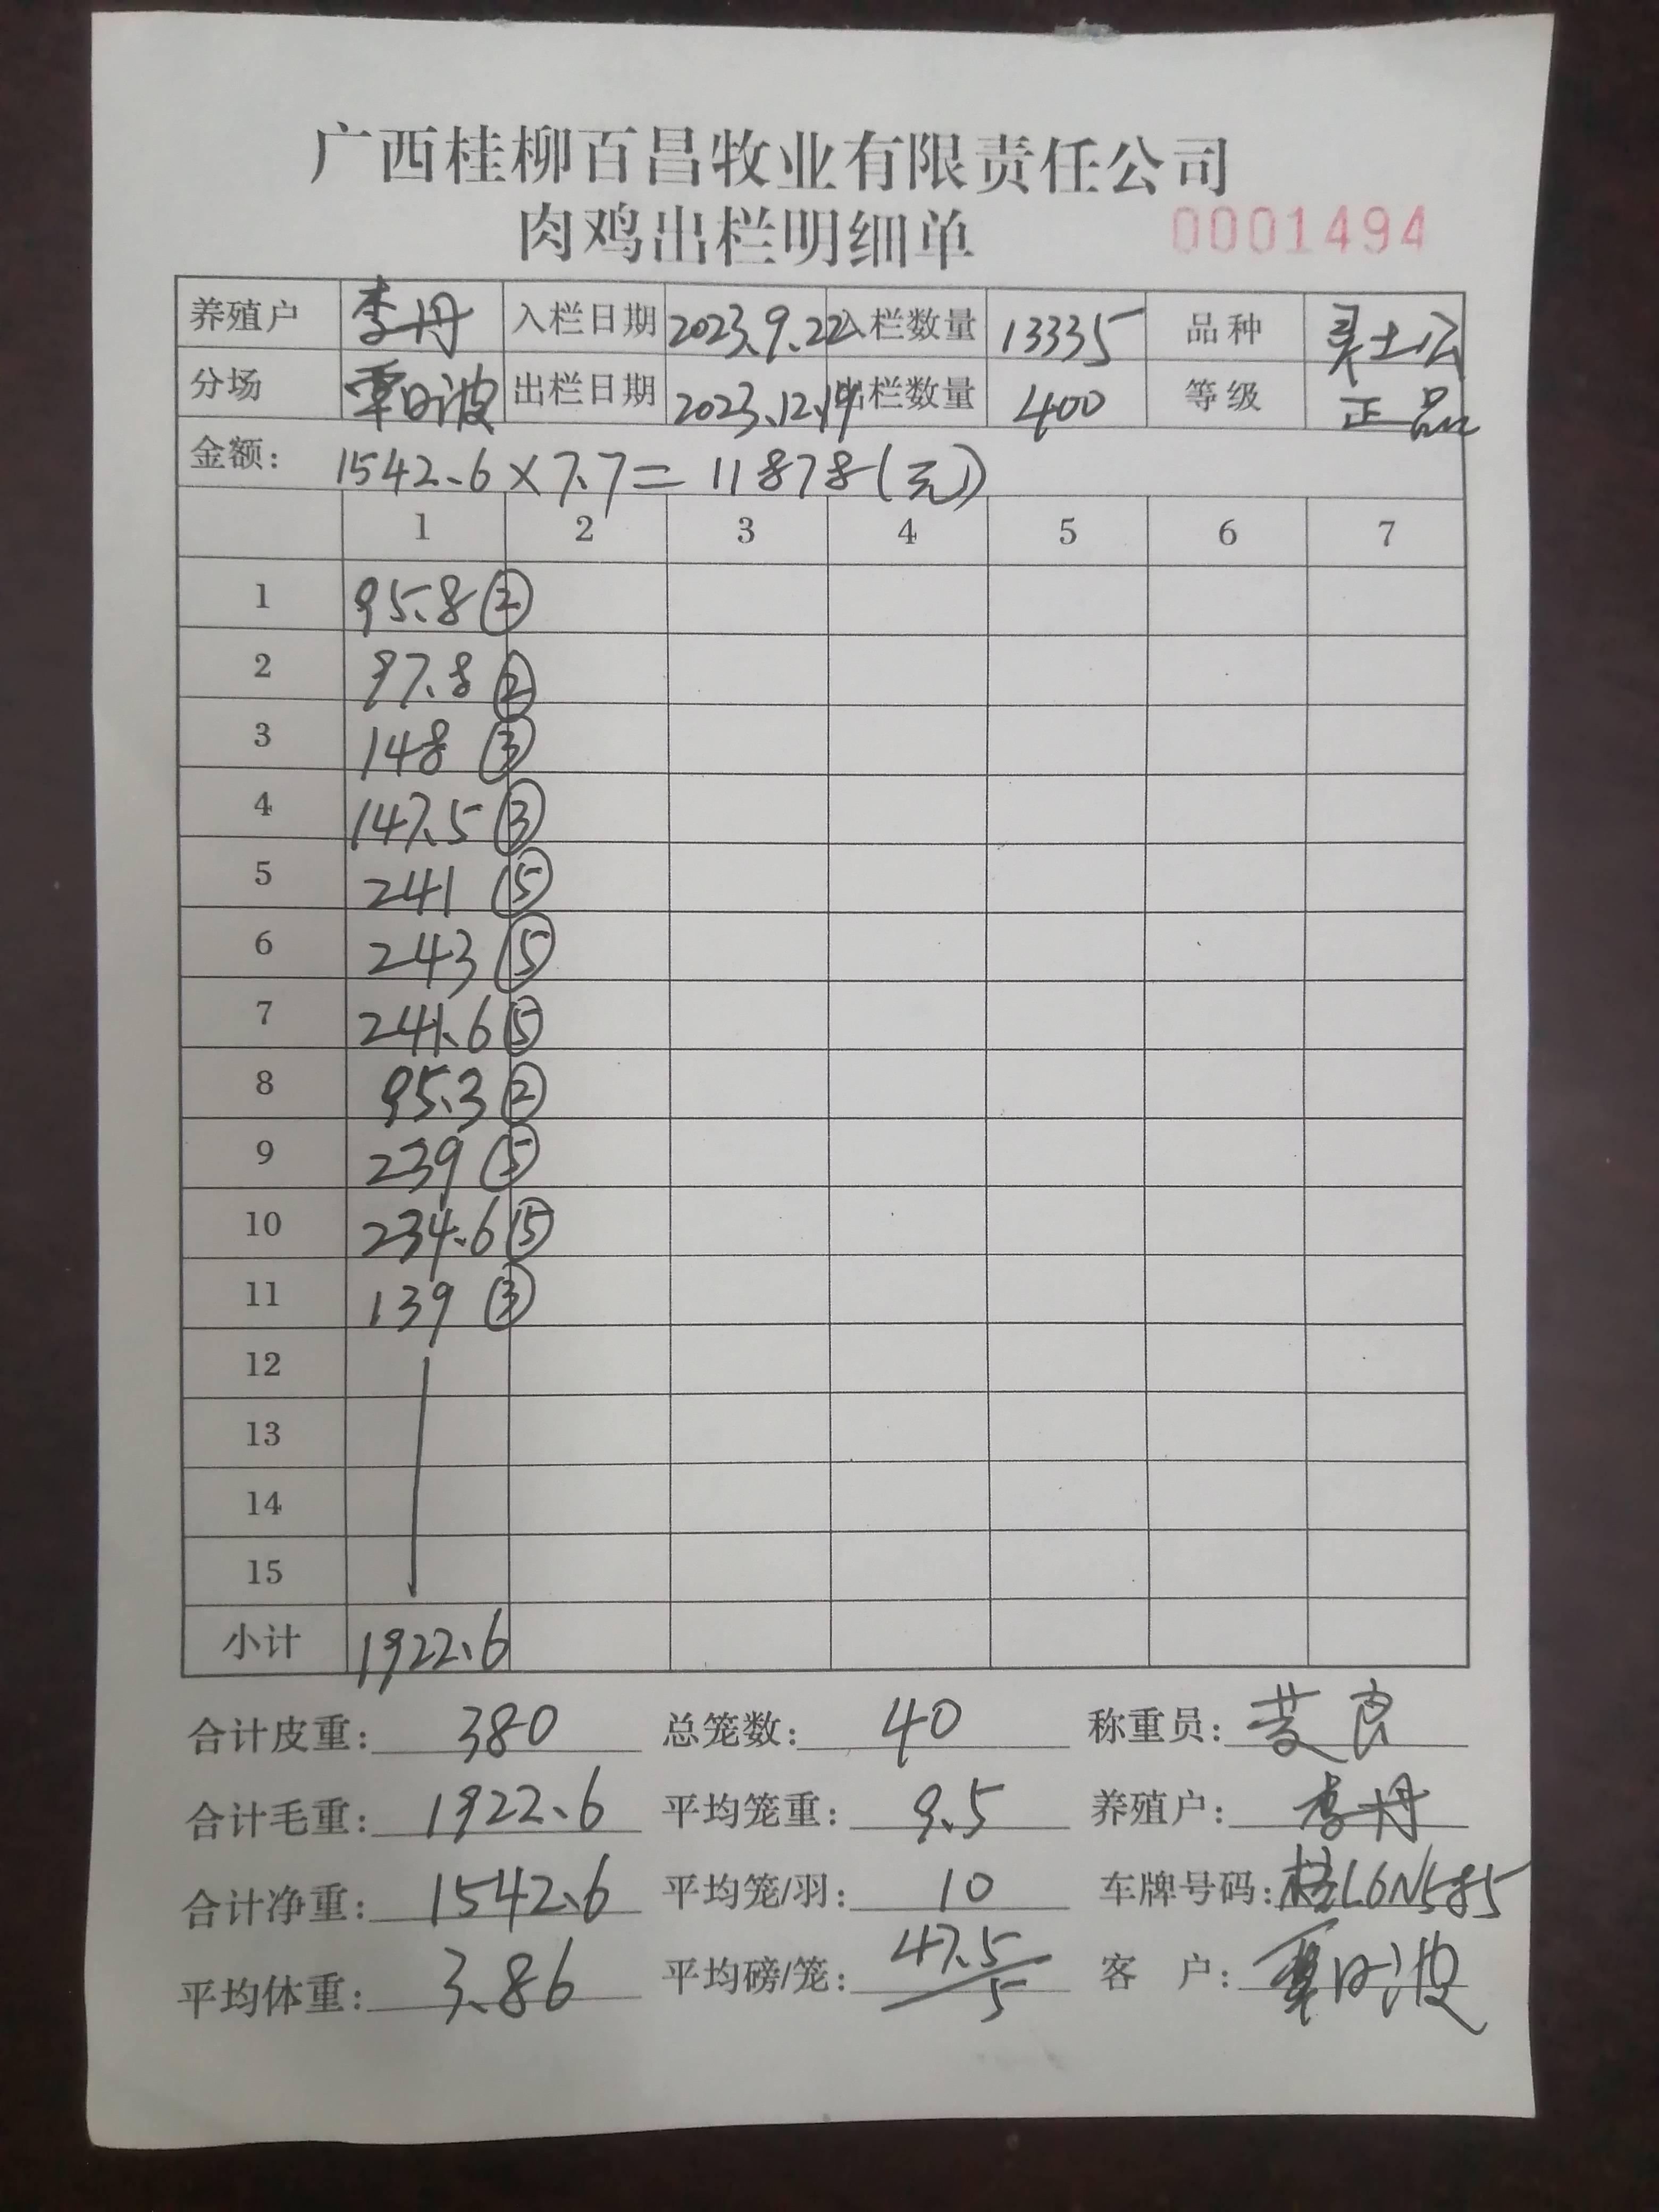 广西桂柳百昌牧业有限责任公司
肉鸡出栏明细单 0001494
养殖户 李丹 入栏日期 2023.9.22 入栏数量 13335 品种 灵土公
分场 覃日波 出栏日期 2023.12.19 出栏数量 400 等级 正品
金额: 1542.6×7.7=11878(元)
1 2 3 4 5 6 7
1 95.8 ②
2 97.8 ②
3 148 ③
4 147.5 ③
5 241 ⑤
6 243 ⑤
7 241.6 ⑤
8 95.3 ②
9 239 ⑤
10 234.6 ⑤
11 139 ③
12
13
14
15
小计 1922.6
合计皮重: 380 总笼数: 40 称重员:
合计毛重: 1922.6 平均笼重: 9.5 养殖户: 李丹
合计净重: 1542.6 平均笼/羽: 10 车牌号码: 桂L6N585
平均体重: 3.86 平均磅/笼: 47.5/5 客 户: 覃日波